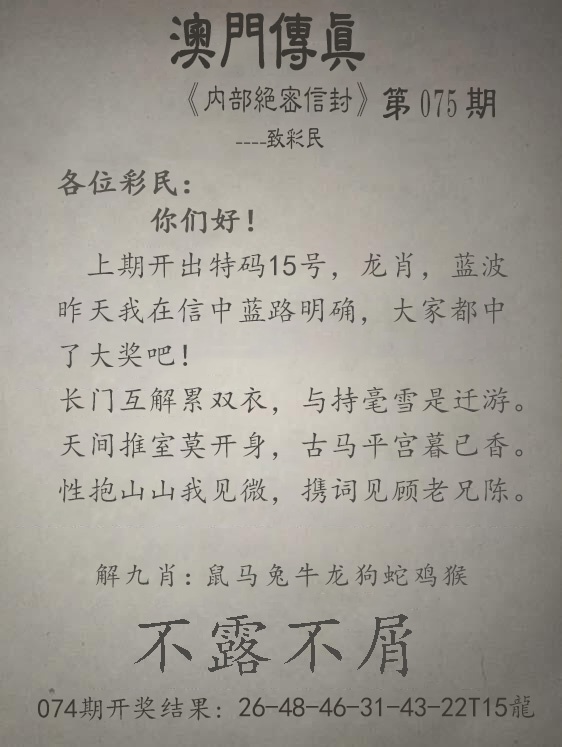 澳門傳眞
《内部絕密信封》第075期
----致彩民
各位彩民：
你们好！
上期开出特码15号，龙肖，蓝波
昨天我在信中蓝路明确，大家都中
了大奖吧！
长门互解累双衣，与持毫雪是迁游。
天间推室莫开身，古马平宫暮已香。
性抱山山我见微，携词见顾老兄陈。
解九肖：鼠马兔牛龙狗蛇鸡猴
不露不屑
074期开奖结果：26-48-46-31-43-22T15龍